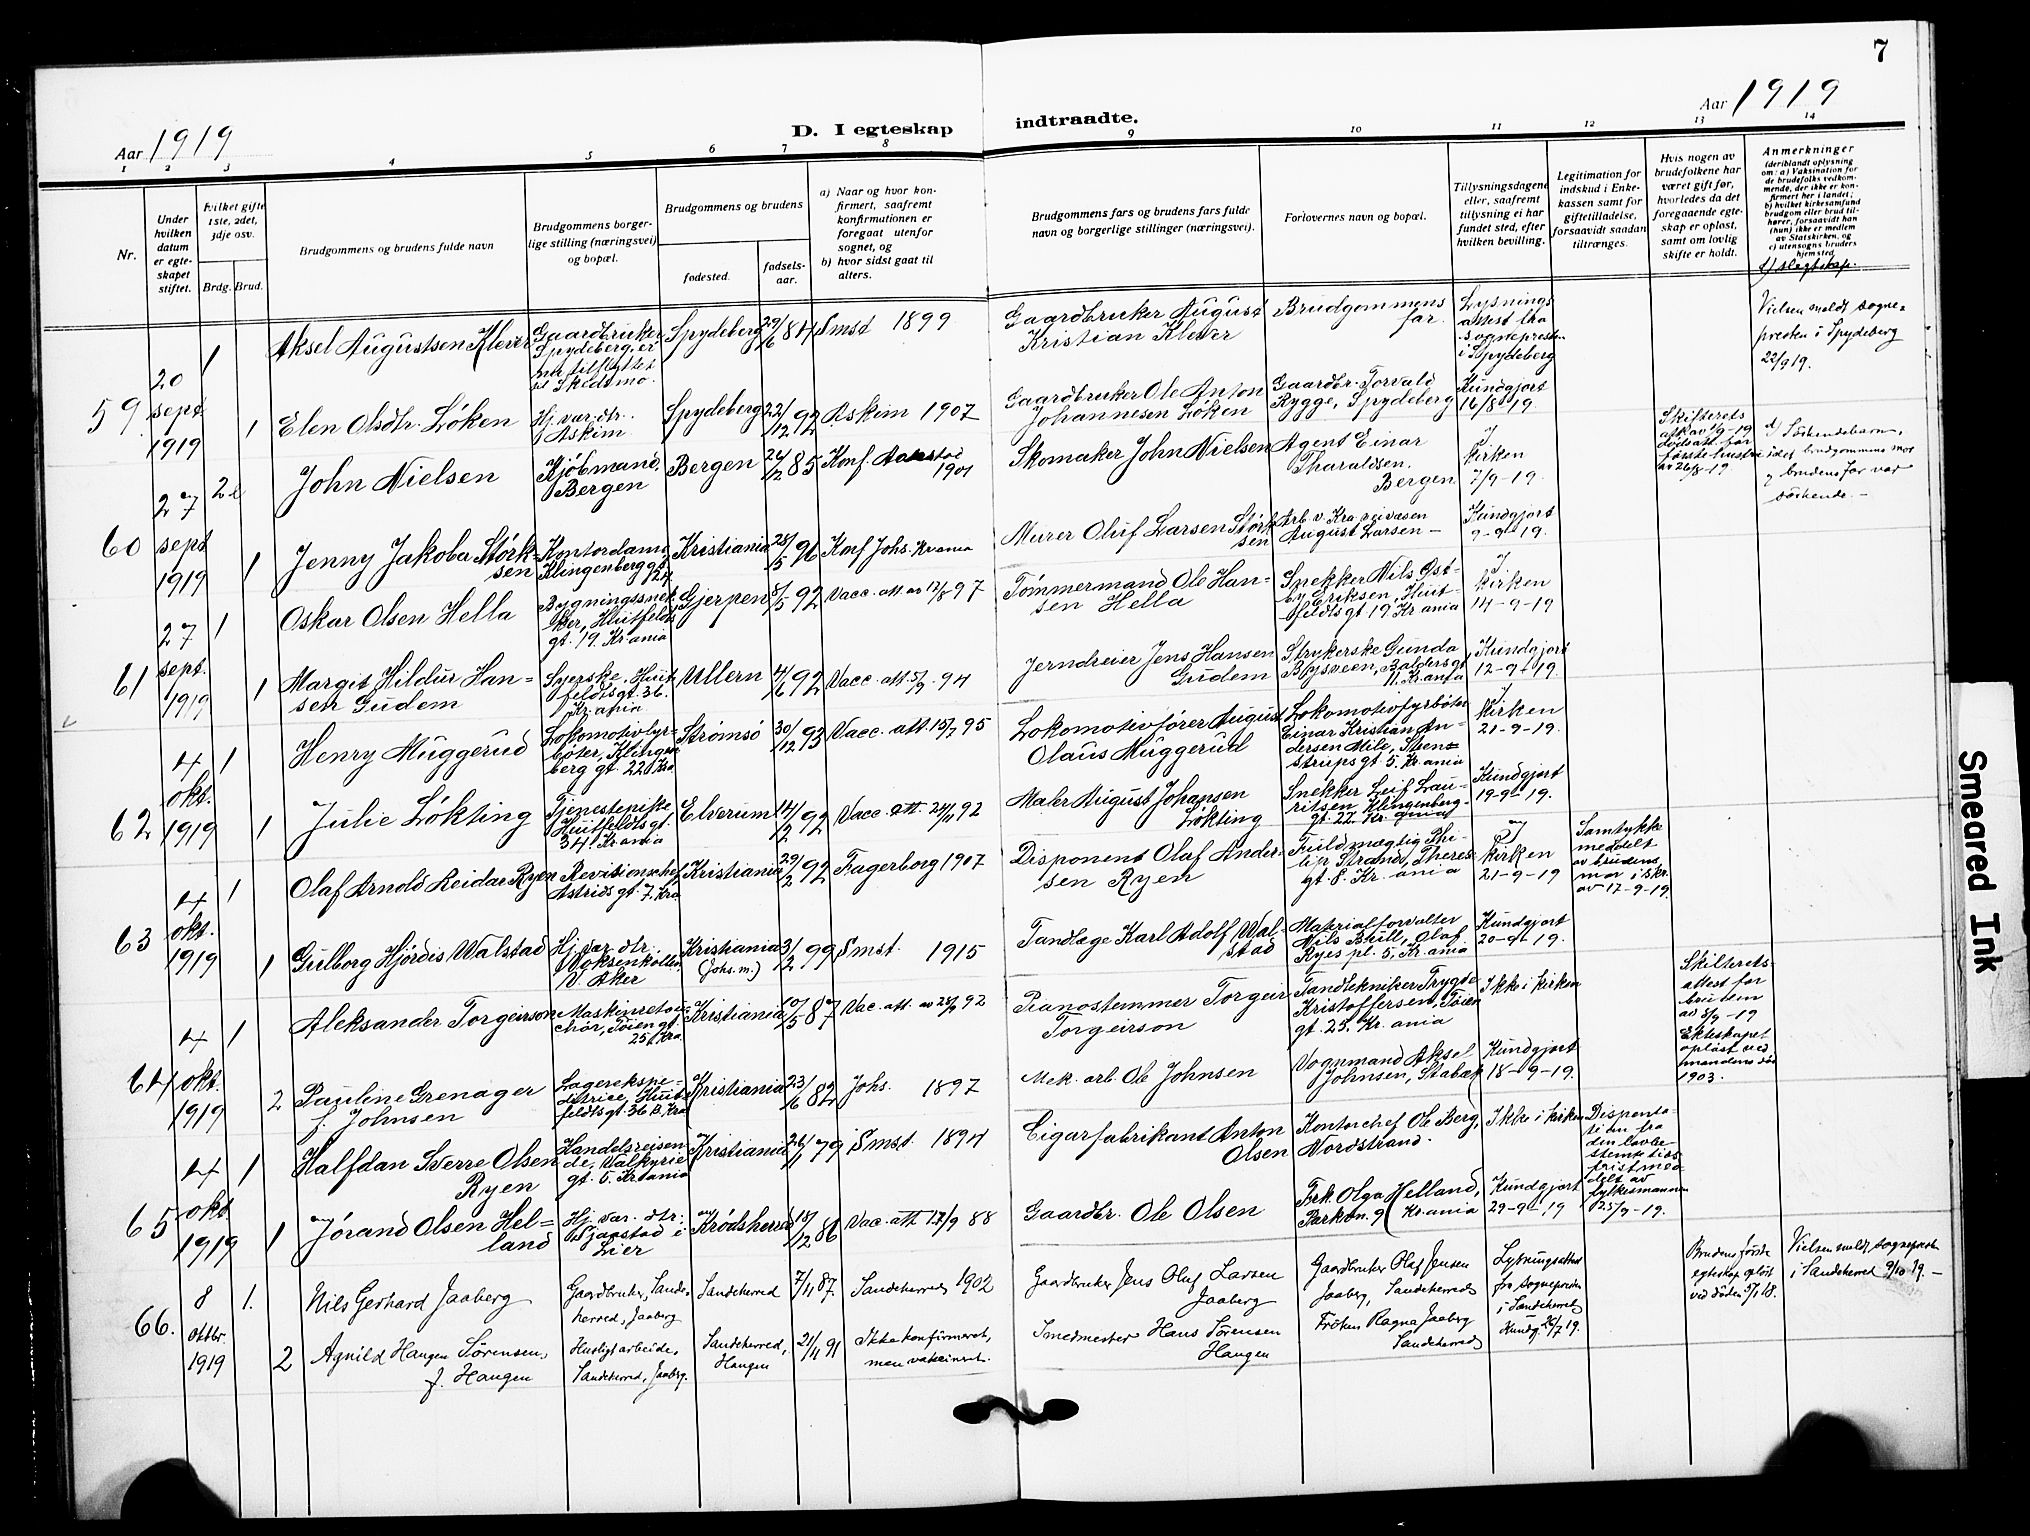 7
Aar 1919
D. I egteskap
indtraadte.
Aar 1919
1 2 3 4 5 6 7 8
9 10 11 12 13 14
Nr.
Under hvilken datum er egteskapet stiftet.
Hvilket gifte 1ste, 2det, 3dje osv.
Brdg. Brud.
Brudgommens og brudens fulde navn
Brudgommens borgerlige stilling (næringsvei) og bopæl.
Brudgommens og brudens
fødested.
fødselsaar.
a) Naar og hvor konfirmert, saafremt konfirmationen er foregaat utenfor sognet, og
b) hvor sidst gaat til alters.
Brudgommens fars og brudens fars fulde navn og borgerlige stillinger (næringsvei).
Forlovernes navn og bopæl.
Tillysningsdagene eller, saafremt tillysning ei har fundet sted, efter hvilken bevilling.
Legitimation for indskud i Enkekassen samt for giftetilladelse, forsaavidt saadan tiltrænges.
Hvis nogen av brudefolkene har været gift før, hvorledes da det foregaaende egteskap er opløst, samt om lovlig skifte er holdt.
Anmerkninger
(deriblandt oplysning om: a) Vaksination for de brudefolks vedkommende, der ikke er konfirmert her i landet; b) hvilket kirkesamfund brudgom eller brud tilhører, forsaavidt han (hun) ikke er medlem av Statskirken, og c) utensogns bruders hjemsted
d) slegtskap.
59
20 sept. 1919
1 Aksel Augustsen Klever Gaardbruker, Spydeberg, er nu tilflyttet til Skedsmo. Spydeberg 29/6 84 Smst 1899 Gaardbruker August Kristian Klever Brudgommens far. Lysningsattest fra sognepresten i Spydeberg Vielsen meldt sognepresten i Spydeberg 22/9 19.
1 Elen Olsdtr. Løken Hj. vær. dtr. Askim Spydeberg 22/12 92 Askim 1907 Gaardbruker Ole Anton Johannesen Løken Gaardbr. Torvald Rygge, Spydeberg Kundgjort 16/8-19
60
27 sept 1919
2 John Nielsen Kjøbmand, Bergen Bergen 26/2 85 Konf. 1901 Skomaker John Nielsen Agent Einar Tharaldsen, Bergen I kirken 7/9-19. Skifteretsatt. av 1/9-19 første hustru av 26/8-19 d) Søskendebarn, idet brudgommens mor og brudens far var søskende.-
1 Jenny Jakoba Størksen Kontordame, Klingenberg gt. 24 Kristiania 25/5 96 Konf Johs. Kr.ania Murer Oluf Larsen Størksen Arb. v. Kra veivæsen August Larsen - Kundgjort 9-9-19.
61
27 sept. 1919
1 Oskar Olsen Hella Bygningssnekker, Huitfeldts gt. 19. Kr.ania Gjerpen 8/5 92 Vacc. att. av 12/8 97 Tømmermand Ole Hansen Hella Snekker Nils Østby Eriksen, Huitfeldtsgt 19 Kr.ania I kirken 14-9-19
1 Margit Hildur Hansen Gudem Syerske, Huitfeldtsgt. 36. Kr.ania Ullern 4/6 92 Vacc. att. 5/9-94 Jerndreier Jens Hansen Gudem Strykerske Gunda Blysveen, Baldersgt. 11. Kr.ania Kundgjort 12-9-19.
62
4 okt. 1919
1 Henry Muggerud Lokomotivfyrbøter, Klingenberg gt. 22 Kra Strømsø 30/12 93 Vacc. att. 15/7 95 Lokomotivfører August Olaus Muggerud Lokomotivfyrbøter Einar Kristian Andersen Mile, Steenstrupsgt. 5. Kr.ania I kirken 21-9-19.
1 Julie Løkting Tjenestepike Huitfeldtsgt. 34. Kr.ania Elverum 14/2 92 Vacc. att. 24/11 92 Maler August Johansen Løkting Snekker Leif Lauritsen, Klingenberggt. 22. Kr.ania Kundgjort 19-9-19.
63
4 okt. 1919
1 Olaf Arnold Reidar Ryen Revisionschef Astrids gt. 7. Kra Kristiania 29/2 92 Fagerborg 1907 Disponent Olaf Andersen Ryen Fuldmægtig Philip Strand, Theresesgt. 8. Kr.ania I kirken 21-9-19 Samtykke meddelt av brudens mor i skr. av 17-9-19.
1 Gulborg Hjørdis Walstad Hj. vær. dtr. Voksenkollen, V. Aker Kristiania (Johs. m.) 3/12 99 Smst. 1915 Tandlæge Karl Adolf Walstad Materialforvalter Nils Bhill, Olaf Ryes pl. 5, Kr.ania Kundgjort 20-9-19.
64
4 okt. 1919
1 Aleksander Torgeirson Maskinretouchør, Tøiengt. 25, Kra Kristiania 10/5 87 Vac. att. av 28/9 92 Pianostemmer Torgeir Torgeirson Tandtekniker Trygve Kristoffersen, Tøiengt. 25. Kr.ania Ikke i kirken Skifteretsattest for bruden av 5/9-19 Ekteskapet opløst ved mandens død 1903.
2 Pauline Grenager f. Johnsen Lagerekspeditrice, Huitfeldtsgt. 36 B. Kra Kristiania 23/6 82 Johs. 1897 Mek. arb. Ole Johnsen Vognmand Aksel Johnsen, Stabæk Kundgjort 18-9-19.
65
4 okt. 1919
1 Halfdan Sverre Olsen Ryen Handelsreisende, Valkyriegt. 5. Kr.ania Kristiania 26/11 79 Smst. 1894 Cigarfabrikant Anton Olsen Kontorchef Ole Berg, Nordstrand. Ikke i kirken Dispensation fra den lovbestemte tidsfrist meddelt av fylkesmannen 25/9-19.
1 Jørand Olsen Helland Hj. vær. dtr. Lier Krødsherred 18/12 86 Vac. att 17/9 88 Gaardbr. Ole Olsen Frk. Olga Helland, Parkvn. 9 Kr.ania Kundgjort 29-9-19
66.
8 oktbr. 1919
1. Nils Gerhard Jaaberg Gaardbruker, Sandeherred, Jaaberg Sandeherred 7/11 87. Sandeherred 1902 Gaardbruker Jens Olaf Larsen Jaaberg Gaardbruker Olaf Jensen Jaaberg, Sandeherred Lysningsattest fra sognepresten i Sandeherred Kundg. 26/7 19. Brudens første egteskap opløst ved døden 5/1 18. Vielsen meldt sognepresten i Sandeherred 9/10 19.-
2 Agnild Haugen Sørensen, f. Haugen Huslig arbeide, Sandeherred, Jaaberg. Sandeherred, Haugen 21/11 91 Ikke konfirmeret, men vaksineret. Smedmester Hans Sørensen Haugen Frøken Ragna Jaaberg Sandeherred
Smeared Ink